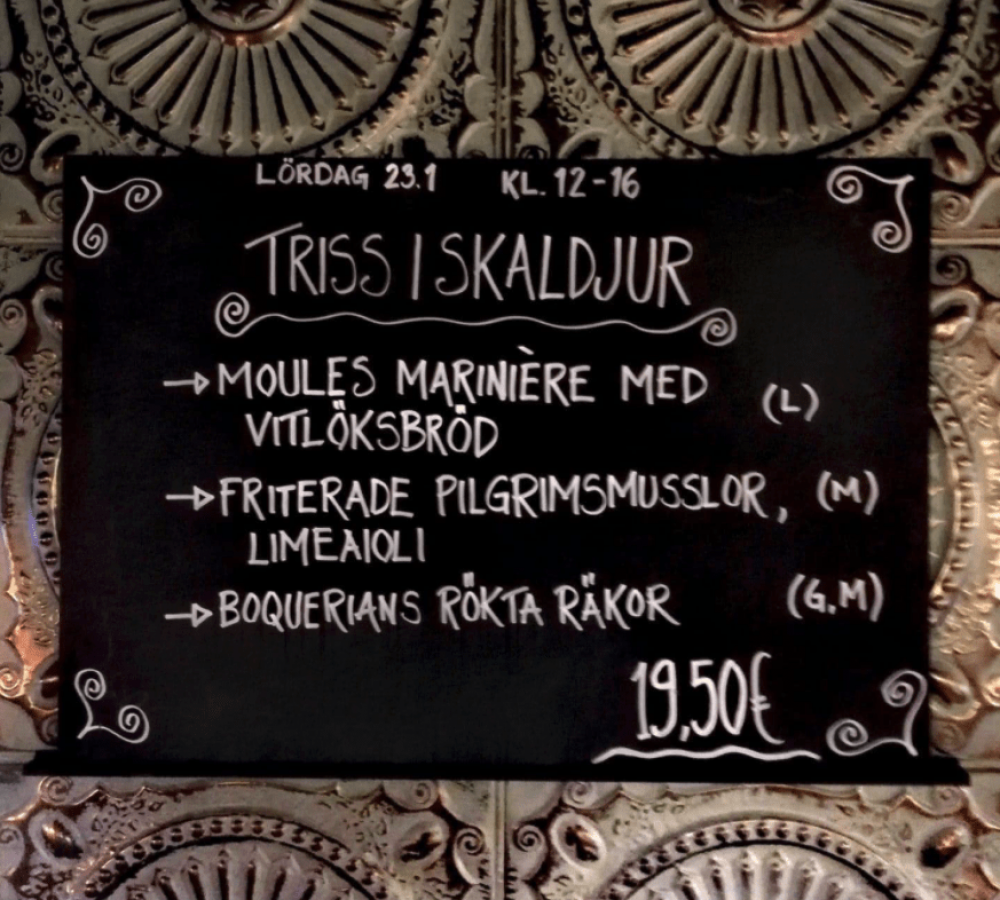 LÖRDAG 23.1 KL. 12-16
TRISS I SKALDJUR
MOULES MARINIÈRE MED (L)
VITLÖKSBRÖD
FRITERADE PILGRIMSMUSSLOR, (M)
LIMEAIOLI
BOQUERIANS RÖKTA RÄKOR (G.M)
19,50€